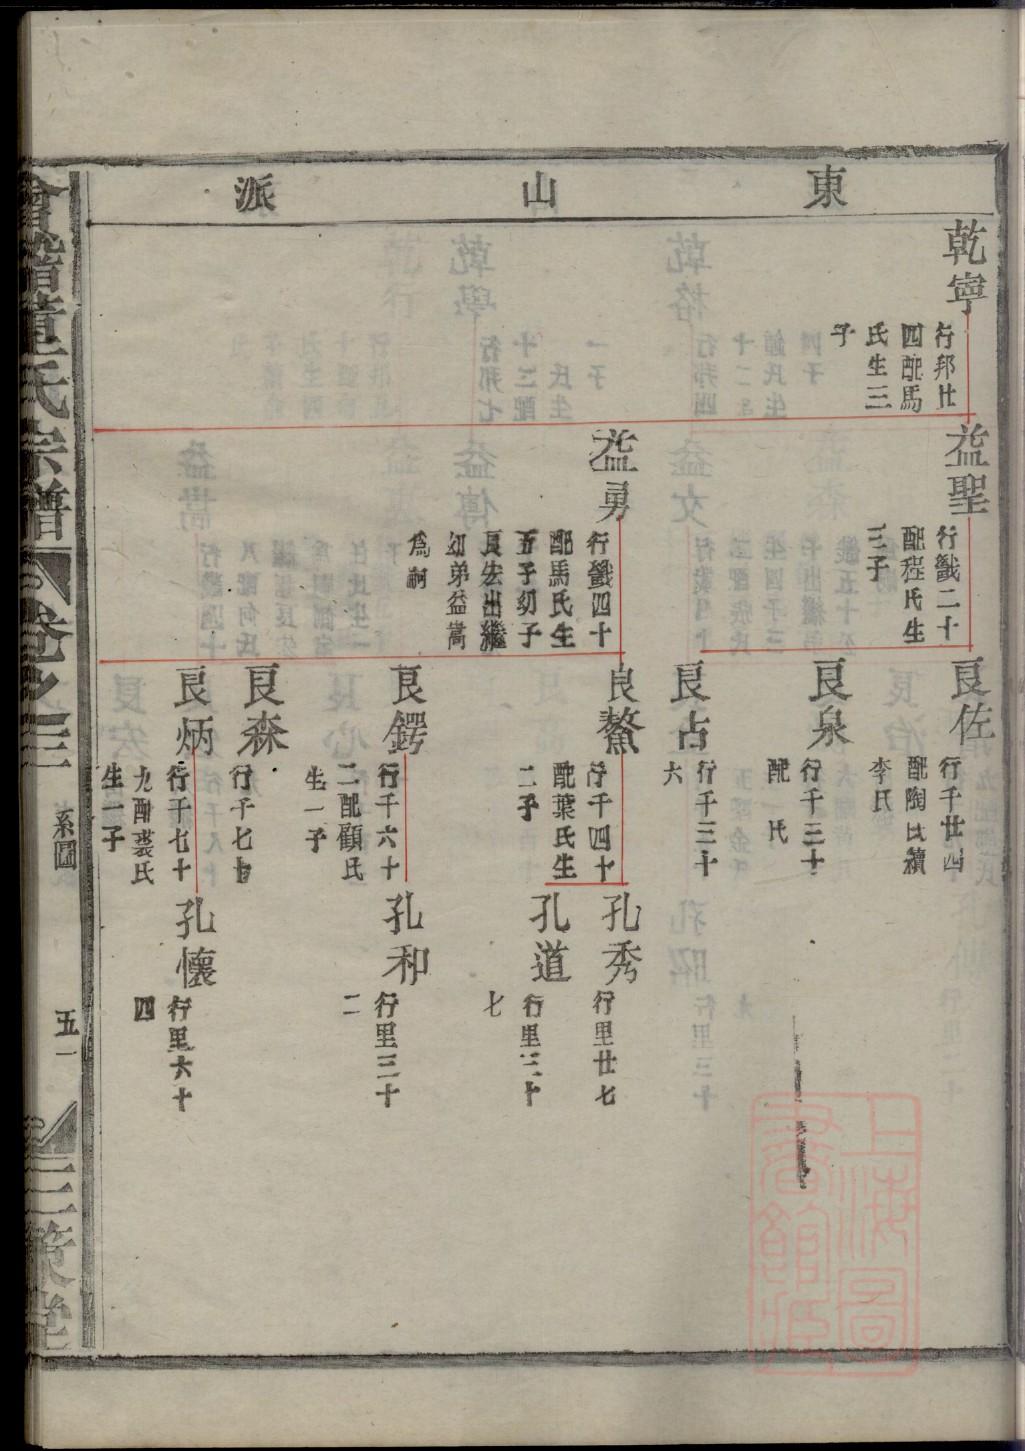 東山派
乾寧
行邦廿
四配馬
氏生三
子
益聖
行戩二十
配程氏生
三子
益勇
行戩四十
配馬氏生
五子幼子
良宏出繼
幼弟益嵩
為嗣
良佐
行千廿四
配陶氏續
李氏
良泉
行千三十
配 氏
良占
行千三十
六
良鰲
行千四十
配葉氏生
二子
良鍔
行千六十
二配顧氏
生一子
良森
行千七十
良炳
行千七十
九配裘氏
生一子
孔秀
行里廿七
孔道
行里三十
七
孔和
行里三十
二
孔懷
行里六十
四
會稽章氏宗譜
卷之三
系圖
五一
三策堂
上海圖
書館藏